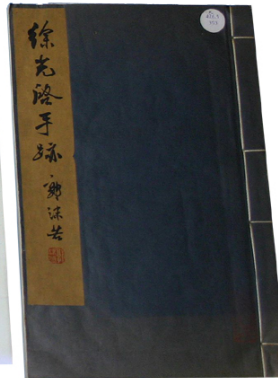 徐光启手跡
郭沫若